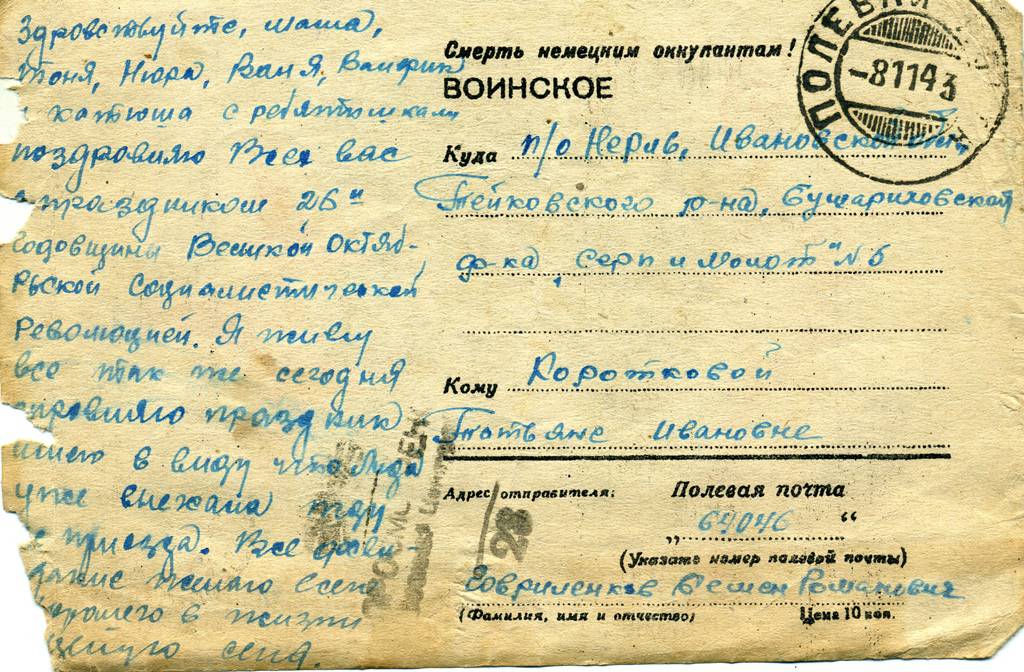 Здравствуйте, Маша,
Тоня, Нюра, Ваня, Валерик
и Катюша с ребятишками
поздровляю Всех вас
с праздником 26й
годовщины Великой Октяб-
рьской Социалистической
Революцией. Я живу
все так же сегодня
справляю праздник
имею в виду что Лида
уже выехала жду
её приезда. Все
желаю всем
хорошего в жизни
целую
Смерть немецким оккупантам!
ВОИНСКОЕ
ПОЛЕВАЯ
-81143
Куда п/о Нерль, Ивановской обл,
Тейковского р-на, Бушариховская
ф-ка „Серп и молот" N 5
Кому Коротковой
Татьяне Ивановне
Адрес отправителя: Полевая почта
„ 64046 “
(Указать номер полевой почты)
Гавриленков Роман­ович
(Фамилия, имя и отчество) Цена 10 коп.
28